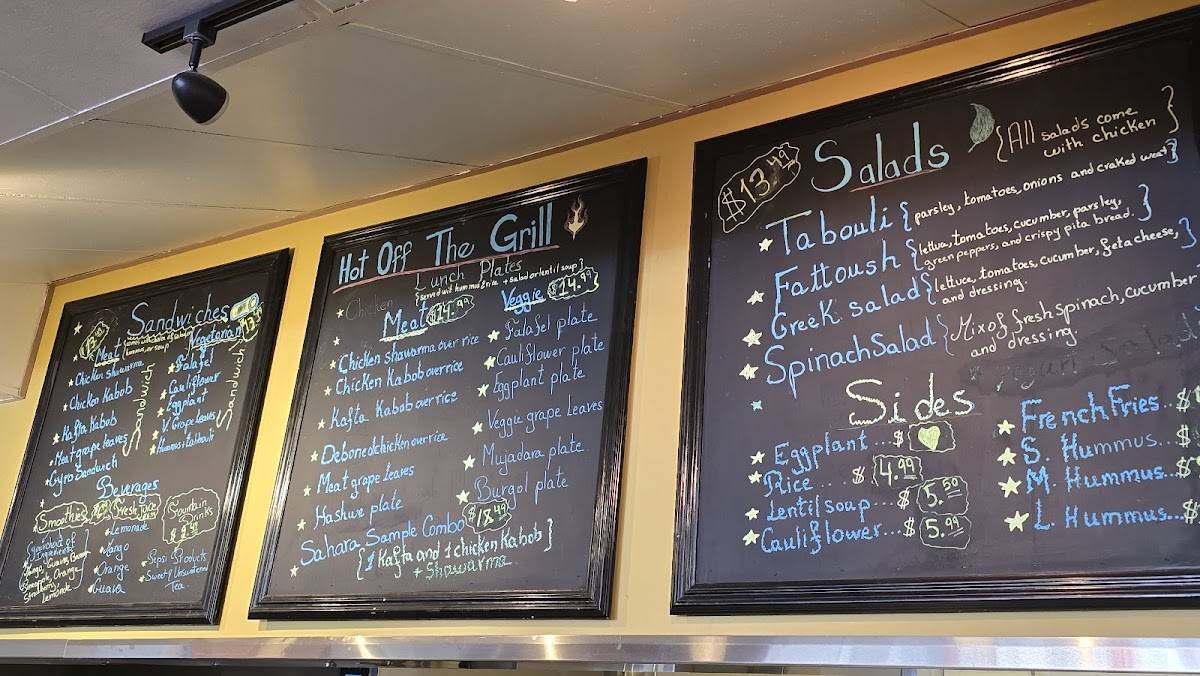 Sandwiches
Meat
Vegetarian
Chicken Shawarma
Chicken Kabob
Kafta Kabob
Meat grape leaves
Gyro Sandwich
Sandwich
Falafel
Cauliflower
Eggplant
V. Grape Leaves
Hummus & Tabbouli
Sandwich
Beverages
Smoothies
Fresh Juice
Fountain Drinks
Lemonade
Mango
Orange
Guava
Pepsi Products
Sweet & Unsweetened
Tea
Hot Off The Grill
Lunch Plates
Chicken
Meat $14.99
Veggie $14.99
Chicken shawarma over rice
Chicken Kabob over rice
Kafta Kabob over rice
Deboned chicken over rice
Meat grape leaves
Hashwe plate
Falafel plate
Cauliflower plate
Eggplant plate
Veggie grape Leaves
Mujadara plate
Burgol plate
Sahara Sample Combo $18.49
{1 Kafta and 1 chicken Kabob}
+ Shawarma
$13.49
Salads
{All salads come
with chicken}
Tabouli {parsley, tomatoes, onions and craked weat}
Fattoush {lettuce, tomatoes, cucumber, parsley,
green peppers, and crispy pita bread.}
Greek salad {lettuce, tomatoes, cucumber, feta cheese,
and dressing.}
Spinach Salad {Mix of fresh spinach, cucumber
and dressing.
Sides
Eggplant...$
Rice $4.99
Lentil soup...$5.50
Cauliflower..$5.99
French Fries..$
S. Hummus...$
M. Hummus...$
L. Hummus...$